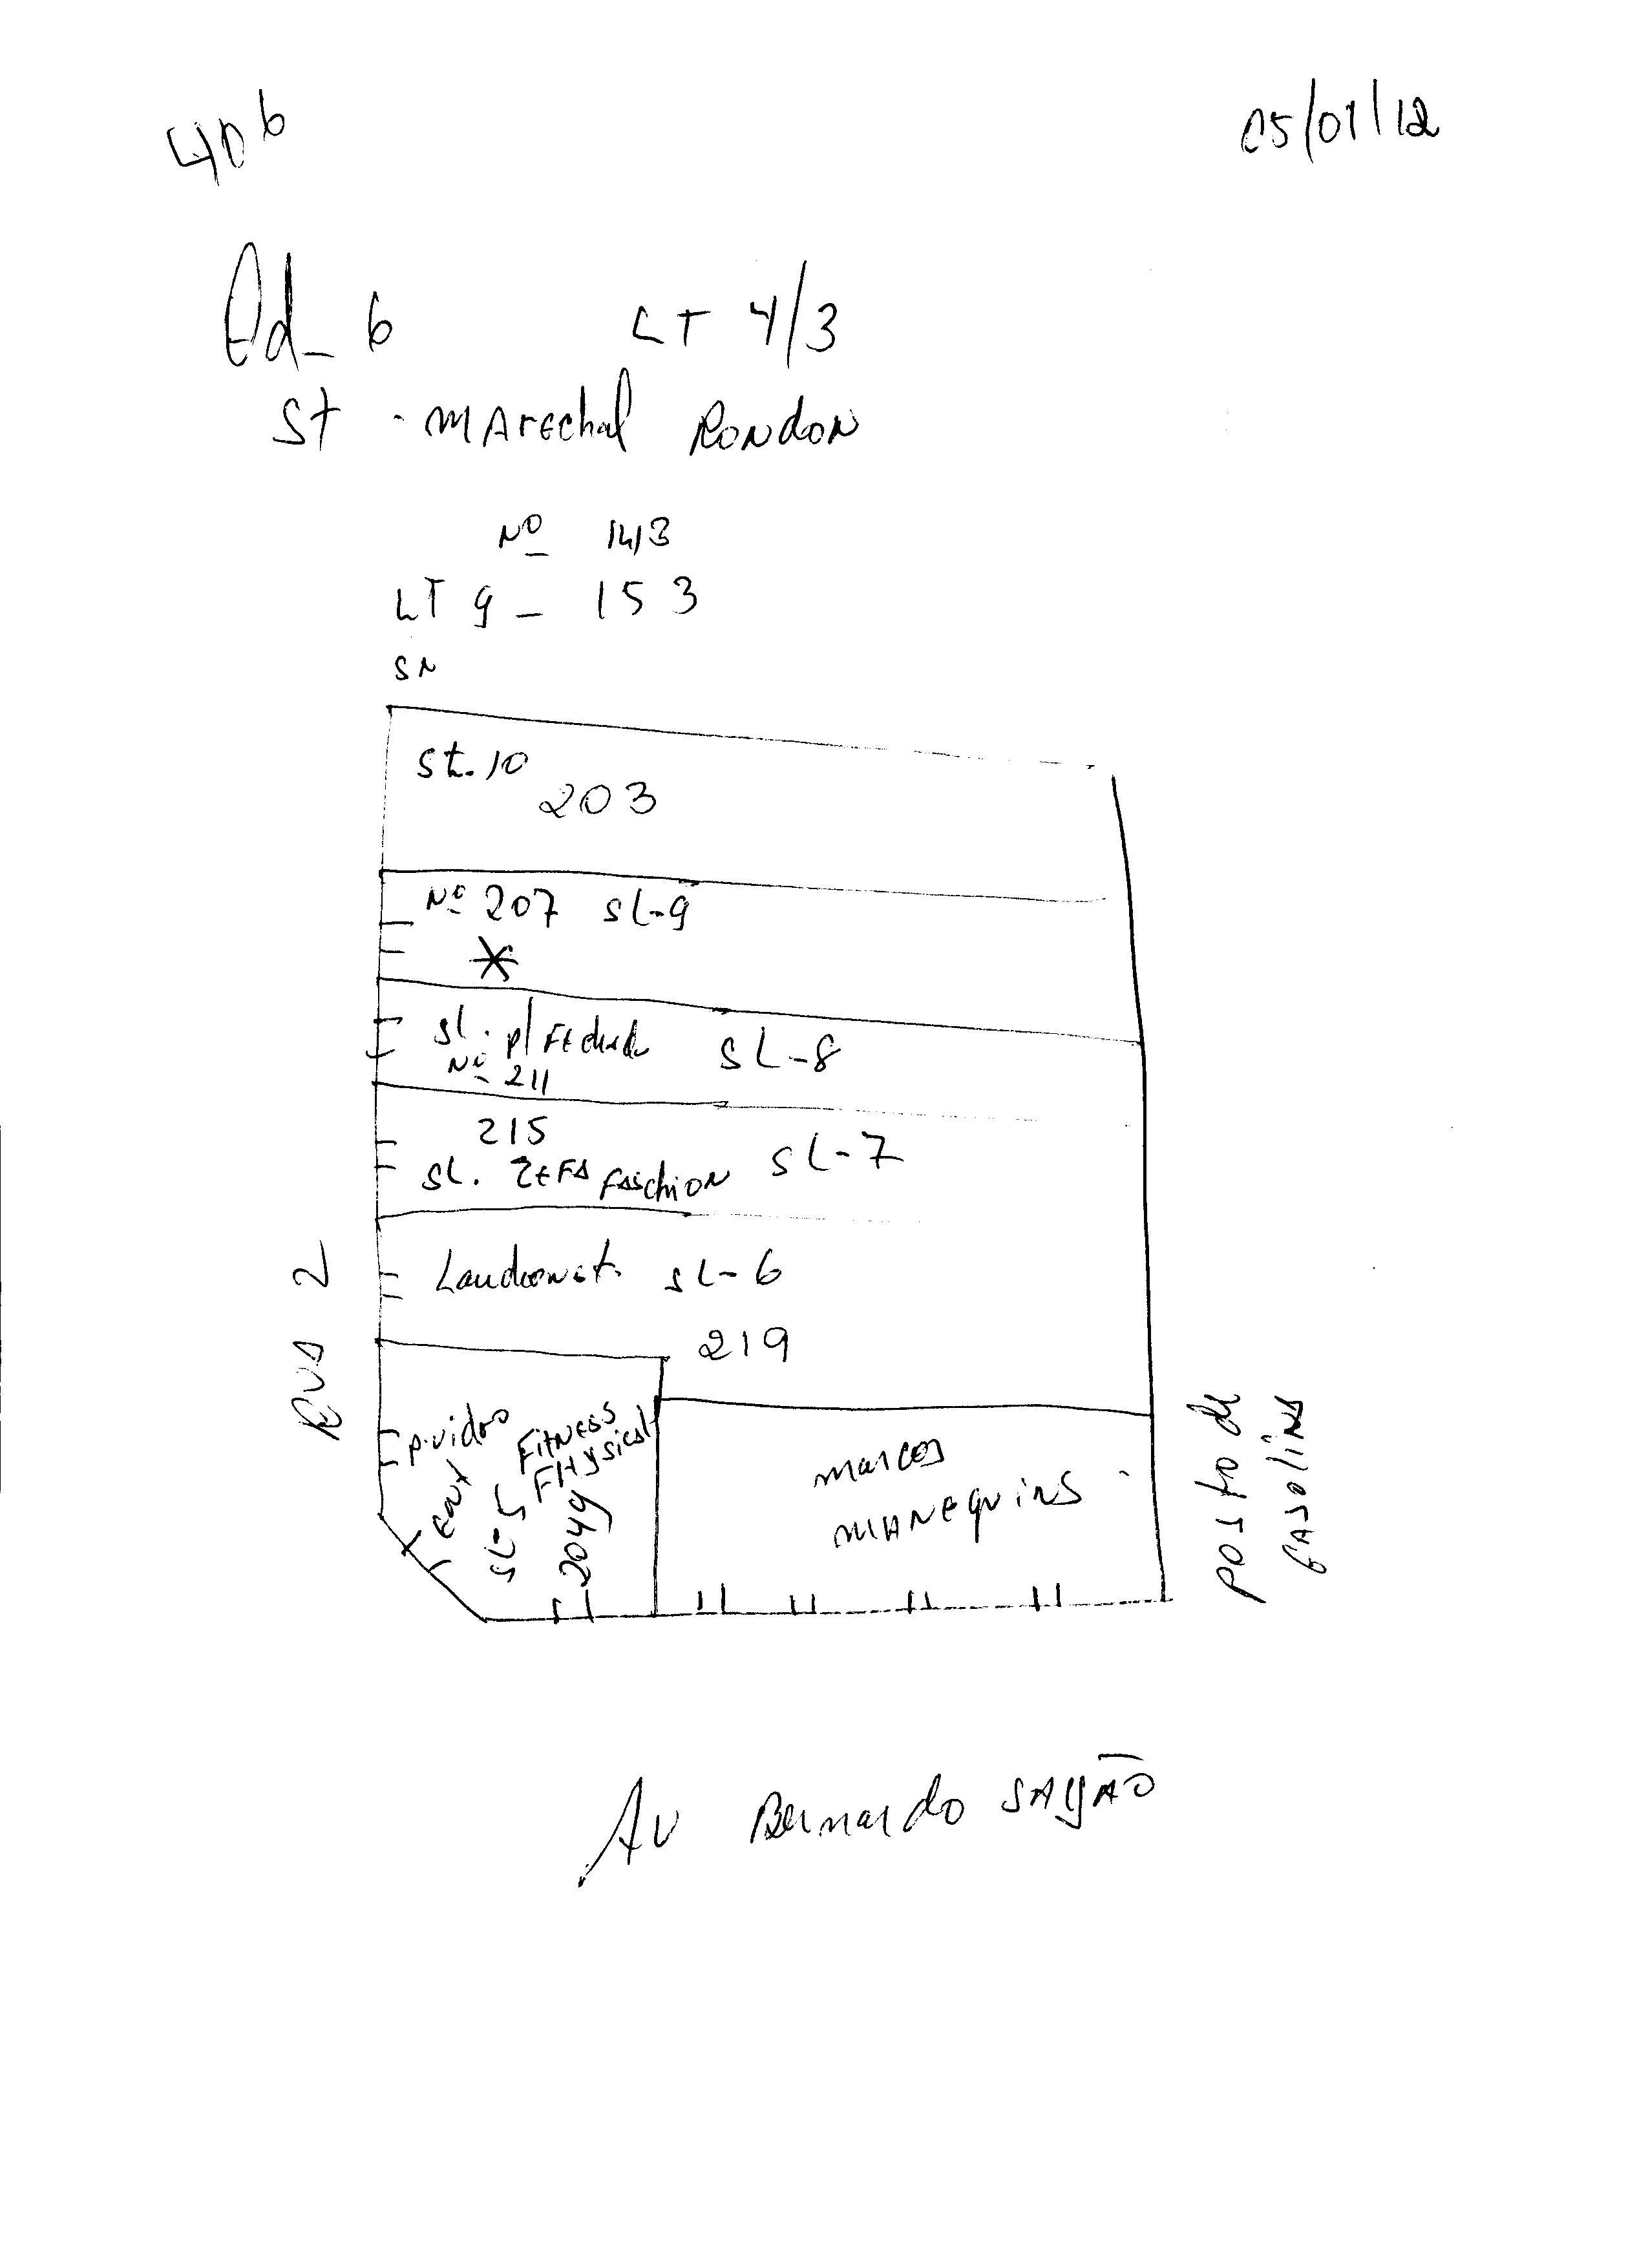 406
05/01/12
Qd_ 6 LT 4/3
St - MArechal RoNdoN
Nº 143
LT 9_ 153
SN
St. 10
203
Nº 207 SL-9
*
SL. p/ FEchado SL-8
Nº 211
215
SL. ZEFA FASchioN SL-7
SL-6
219
p.vidro
FitNESS
FHysical
SL-5
2049
marcos
MANEquiNS
RUA 2
posto de
GASoliNA
Av Bernardo SAyÃO